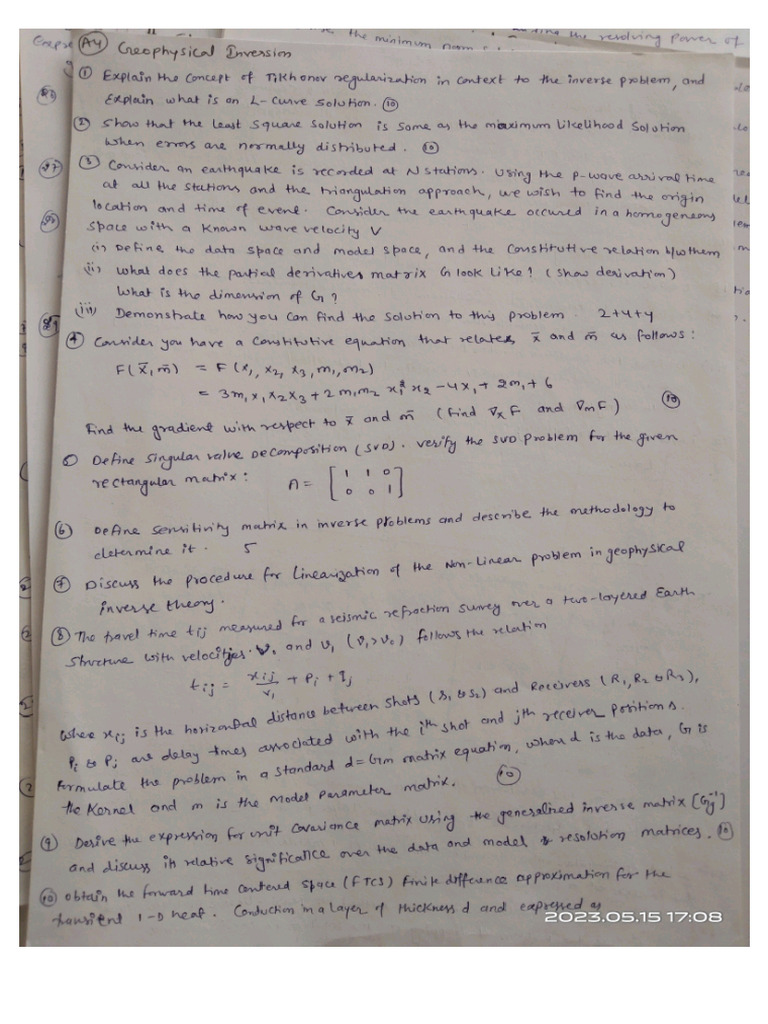 the minimum norm
the resolving power of
A4 Geophysical Inversion
① Explain the concept of Tikhonov regularization in context to the inverse problem, and
Explain what is an L-curve solution. ⑩
② Show that the Least Square Solution is same as the maximum Likelihood Solution
when errors are normally distributed. ⑩
③ Consider an earthquake is recorded at N stations. Using the P-wave arrival time
at all the stations and the triangulation approach, we wish to find the origin
location and time of event. Consider the earthquake occured in a homogeneous
space with a known wave velocity V
(i) Define the data space and model space, and the constitutive relation b/w them
(ii) What does the partial derivatives matrix G look like? (show derivation)
What is the dimension of G?
(iii) Demonstrate how you can find the solution to this problem 2+4+4
④ Consider you have a constitutive equation that relates x̄ and m̄ as follows:
F(x̄, m̄) = F(x₁, x₂, x₃, m₁, m₂)
= 3m₁x₁x₂x₃ + 2m₁m₂ x₁² x₂ - 4x₁ + 2m₁ + 6
Find the gradient with respect to x̄ and m̄ (find ∇xF and ∇mF) ⑩
⑤ Define Singular value Decomposition (SVD). verify the SVD Problem for the given
rectangular matrix: A = [1 1 0
0 0 1]
⑥ Define sensitivity matrix in inverse problems and describe the methodology to
determine it. 5
⑦ Discuss the procedure for linearization of the Non-Linear problem in geophysical
inverse theory.
⑧ The travel time tij measured for a seismic refraction survey over a two-layered Earth
structure with velocities v₀ and v₁ (v₁>v₀) follows the relation
tij = xij/v₁ + Pi + Ij
where xij is the horizontal distance between shots (S₁ to S₂) and Receivers (R₁, R₂ to R₃),
Pi to Pj are delay times associated with the ith shot and jth receiver positions.
Formulate the problem in a standard d=Gm matrix equation, when d is the data, G is
the Kernel and m is the model parameter matrix. ⑩
⑨ Derive the expression for unit covariance matrix using the generalined inverse matrix [Gg⁻¹]
and discuss its relative significance over the data and model resolution matrices. ⑩
⑩ obtain the forward time centered space (FTCS) finite difference approximation for the
transient 1-D heat. Conduction in a layer of thickness d and expressed as
2023.05.15 17:08